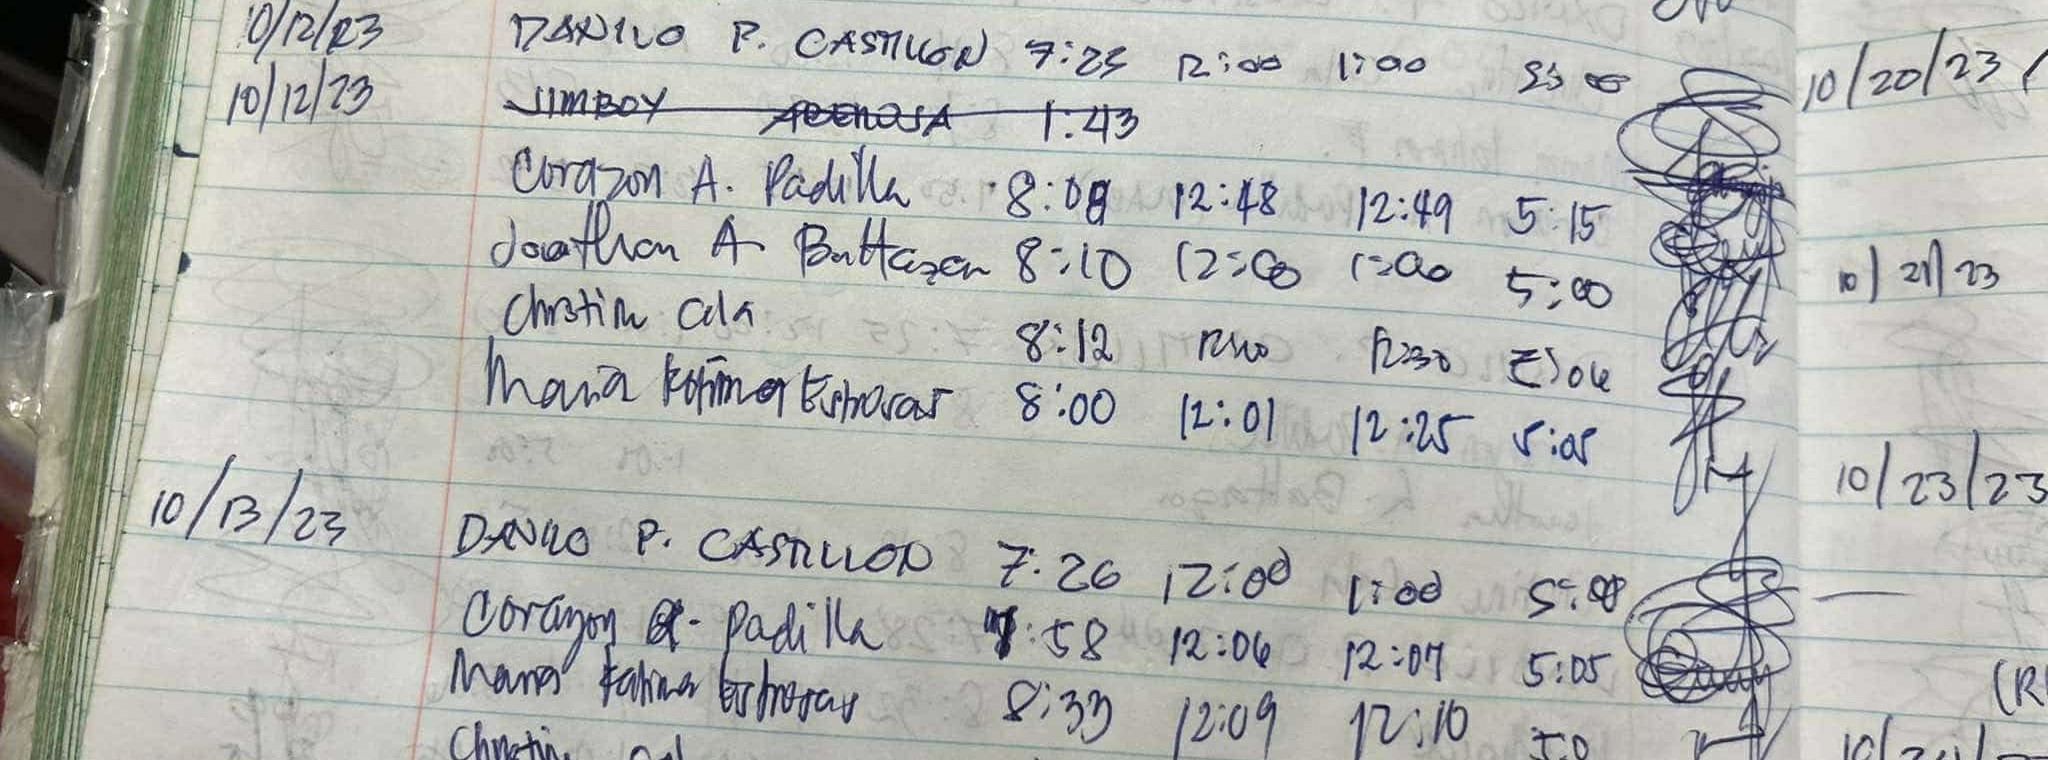 10/12/23 DANILO P. CASTILLON 7:25 12:00 1:00 5:00
10/12/23 JIMBOY 1:43
Corazon A. Padilla 8:08 12:48 12:49 5:15
Jonathan A. Battazan 8:10 12:00 1:00 5:00
Christine 8:12 12:30 5:06
Maria Fatima Estrosas 8:00 12:01 12:25 5:05
10/13/23 DANILO P. CASTILLON 7:26 12:00 1:00 5:00
Corazon A. Padilla 7:58 12:06 12:07 5:05
Maria Fatima Estrosas 8:33 12:09 12:10
10/20/23
10/21/23
10/23/23